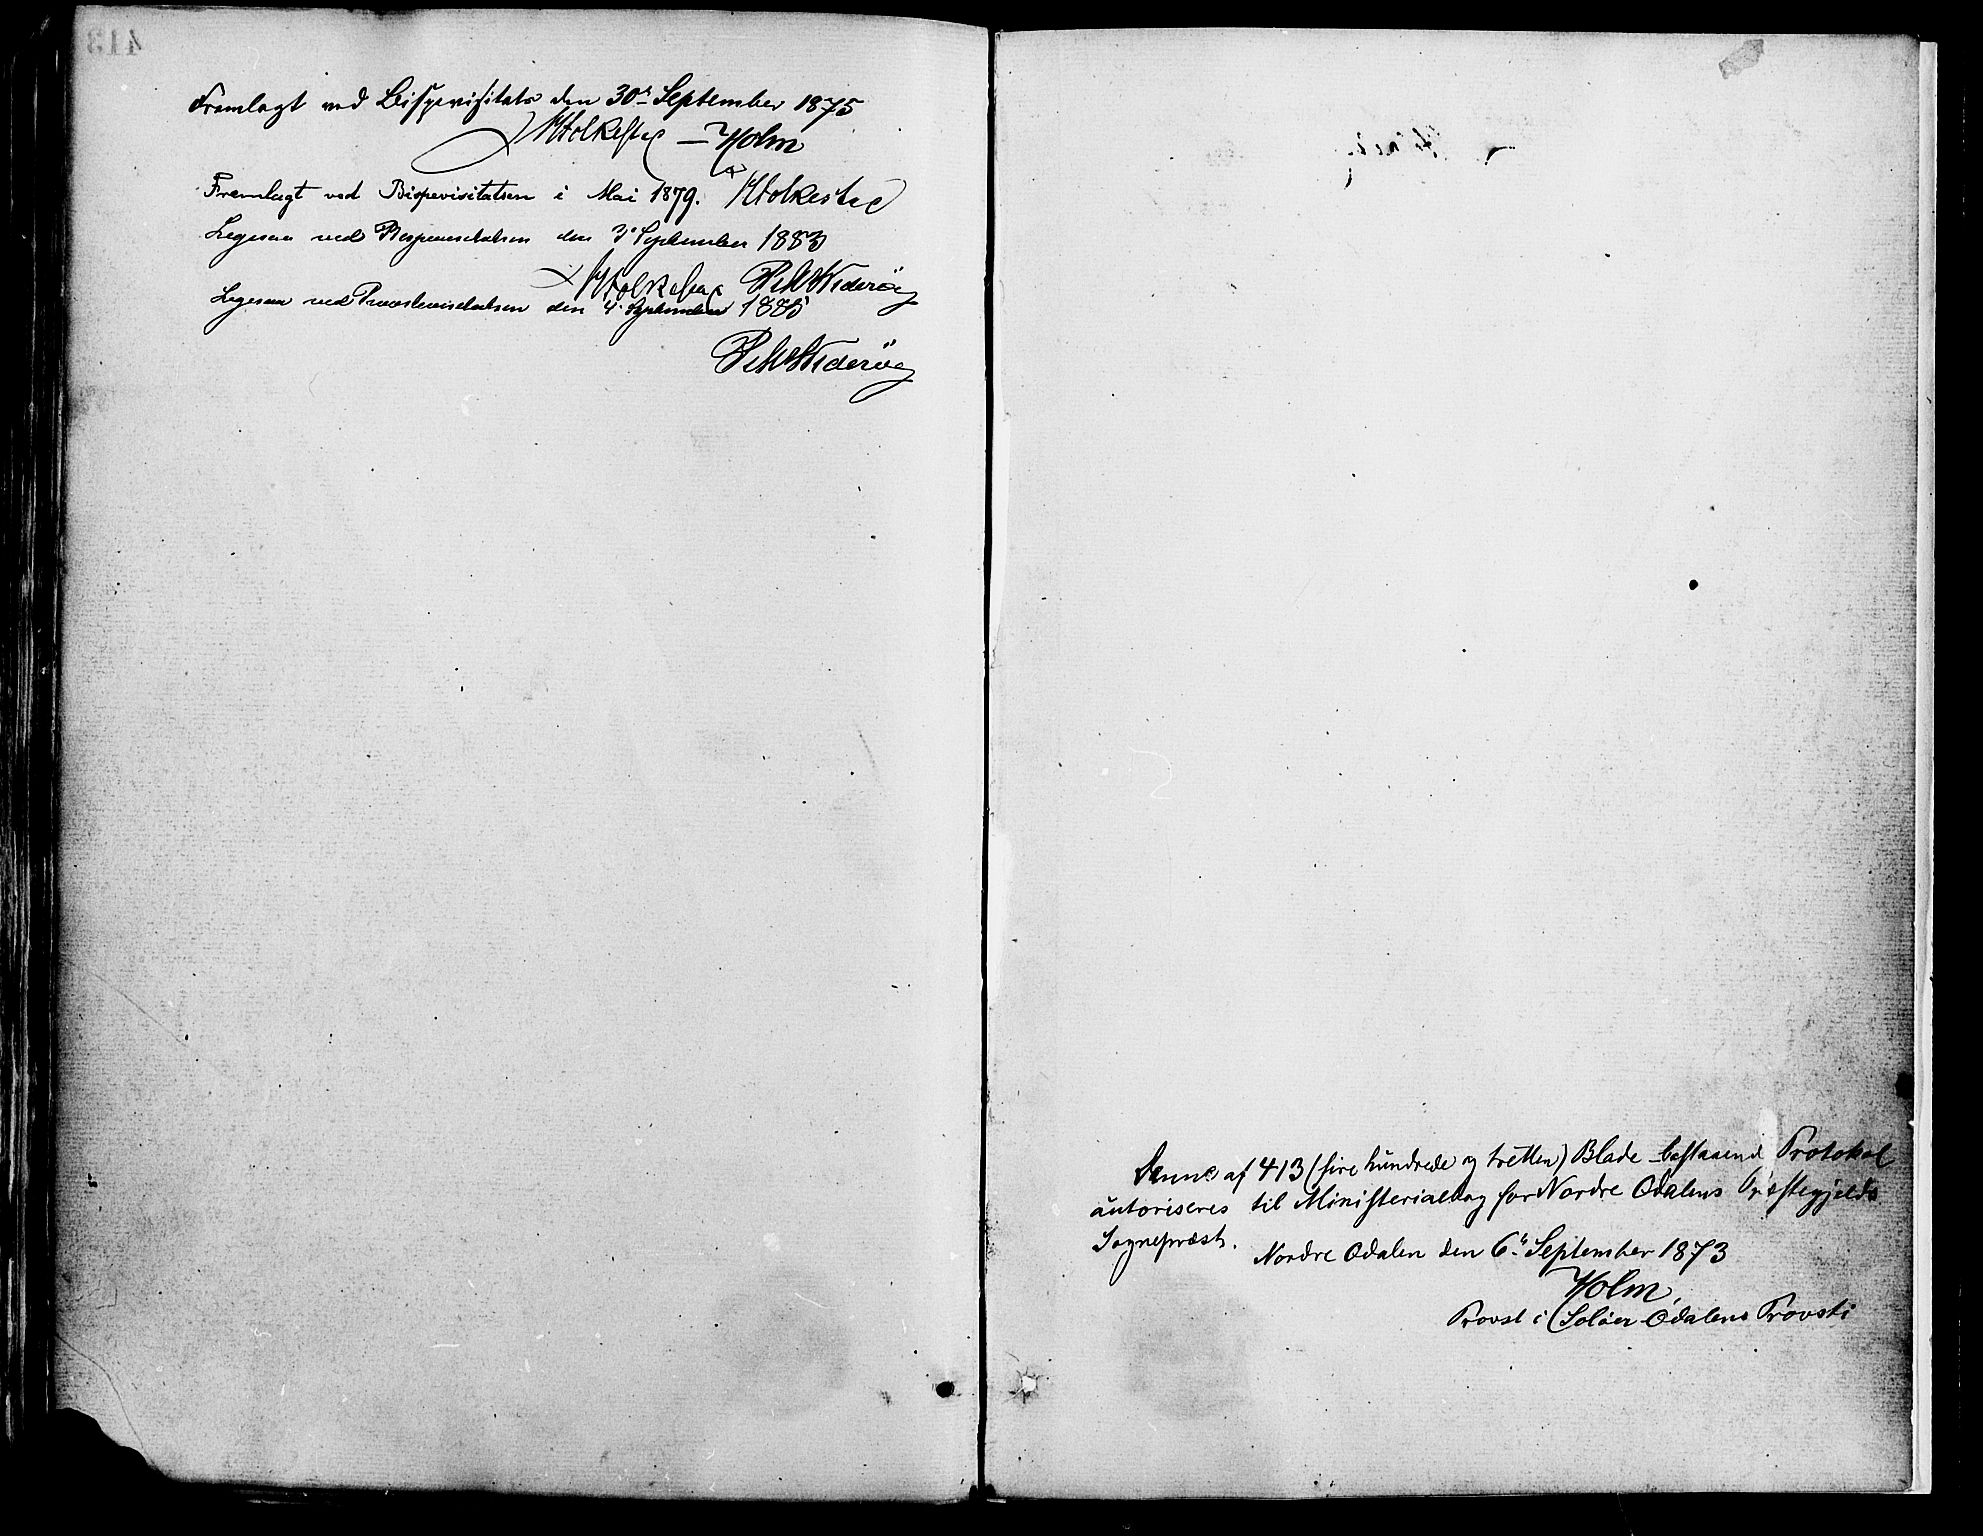 413
Fremlagt ved Bispevisitats den 30te September 1875
Folkestad — Holm
Fremlagt ved Bispevisitatsen i Mai 1879. Folkestad
Ligesaa ved Bispevisitatsen den 3 September 1883
Folkestad
Ligesaa ved Provstevisitatsen den 4 September 1885
Denne af 413 (fire hundrede og tretten) Blade bestaaende Protokol
autoriseres til Ministerialbog for Nordre Odalens Præstegjelds
Sognepræst.
Nordre Odalen den 6te September 1873
Holm,
Provst i Soløer Odalens Provsti